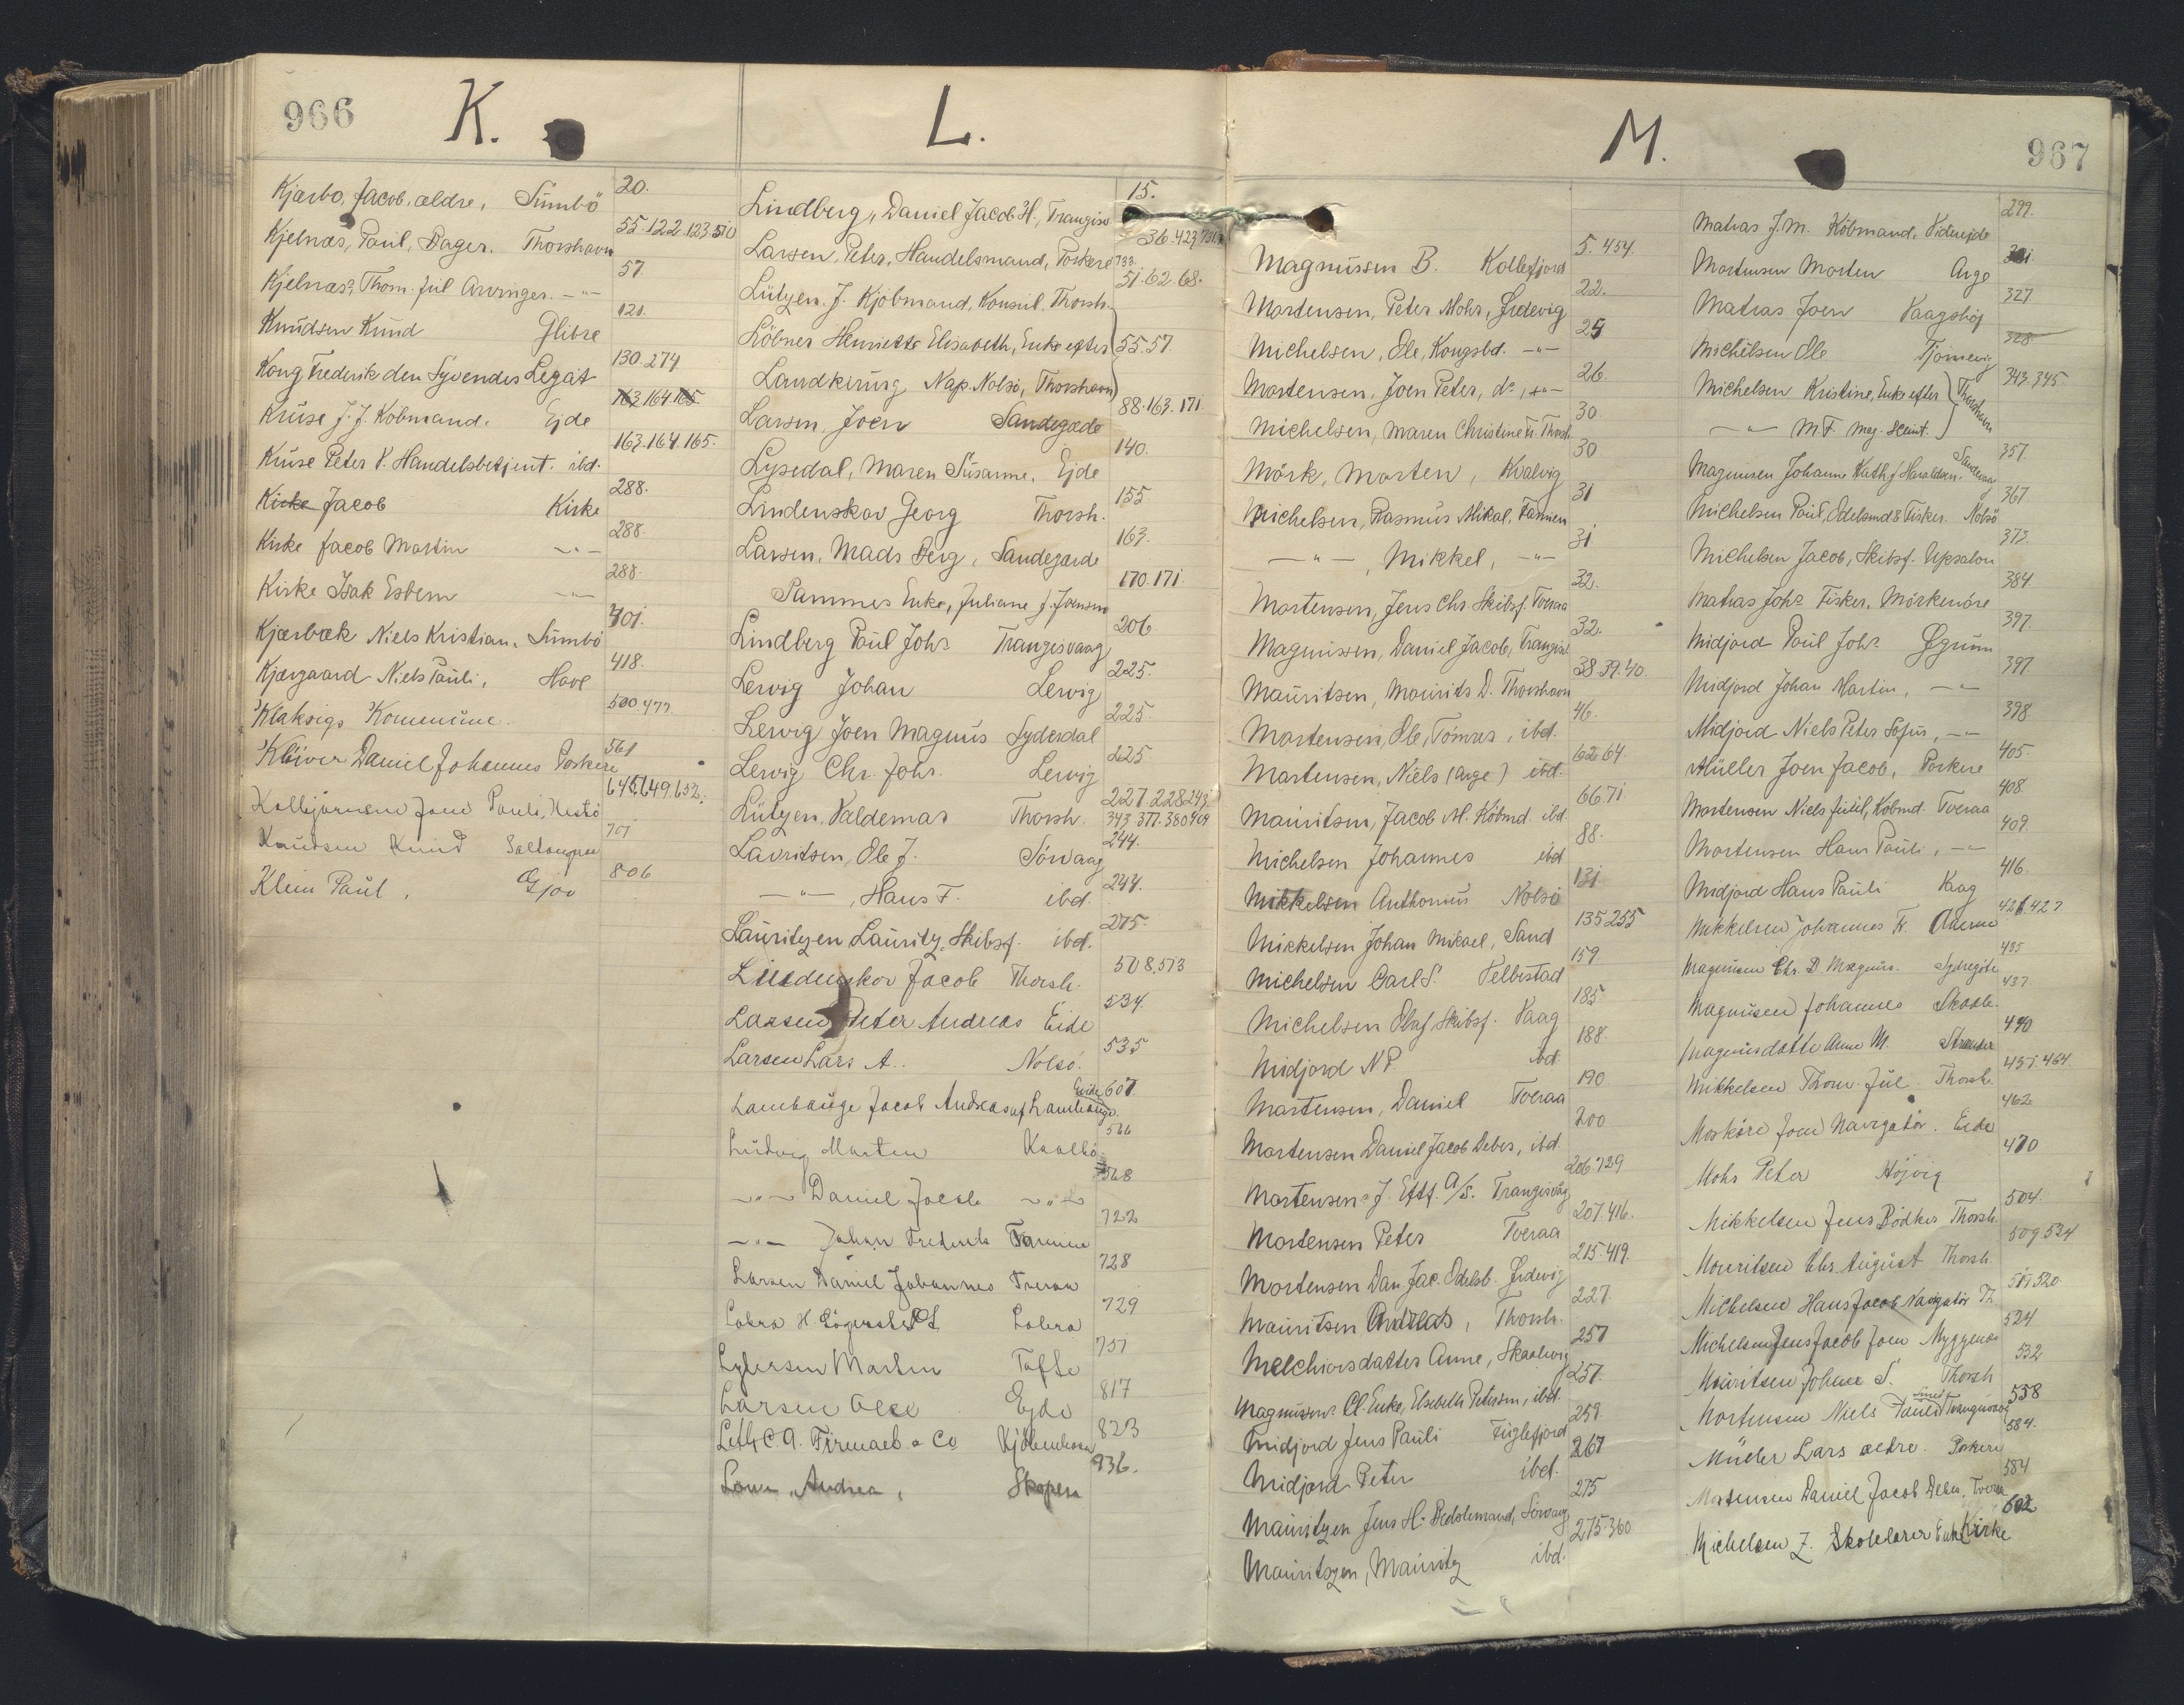 966
K.
Kjærbo, Jacob, ældre, Sumbö 20.
Kjelnæs, Paul, Bager. Thorshavn 55.122.123.510
Kjelnæs, Thom. Jul Arvinger. -"- 57.
Knudsen Knud Glibre 121.
Kong Frederik den Syvendes Legat 130.274
Kruse J. J. Kobmand. Ejde 163 164 165
Kruse Peter V. Handelsbetjent. ibd. 163.164.165.
Kirke Jacob Kirke 288.
Kirke Jacob Martin -"- 288.
Kirke Isak Esbern -"- 288.
Kjærbæk Niels Kristian. Sumbö 401.
Kjærgaard Niels Pauli, Hove 418.
Klaksigs Kommune. 500.477
Klüver Daniel Johannes Porkere 561
Kolbjørnsen Joen Pauli, Nesto 645.649.652.
Knudsen Knud Saltangen 701
Klein Paul, Gjov 806
L.
Lindberg, Daniel Jacob H., Trangisv 15.
Larsen, Peter, Handelsmand, Porkere 36.423,731. 733.
Lützen. J. Kjobmand, Konsul. Thorsh. 51.62.68.
Löbner Henriette Elisabeth, Enke efter 55.57.
Landkirurg Nap. Nolsö, Thorshavn
Larsen, Joen Sandegæde 88.163.171.
Lysedal, Maren Susanne, Ejde 140.
Lindenskov Georg Thorsh. 155
Larsen, Mads Berg, Sandegærde 163.
Sammes Enke, Juliane J. Joensen 170.171
Lindberg Paul Johs Trangisvaag 206
Lervig Johan Lervig 225.
Lervig Joen Magnus Syderdal 225.
Lervig Chr. Johs. Lervig 225
Lützen, Valdemar Thorsh. 227.228 243. 343.377.380 409
Lavritsen, Ole J. Sörvaag 244.
-"-, Hans F. ibd. 244.
Lauritzen Lauritz, Skibsf. ibd. 275.
Lindenskov Jacob Thorsh. 508,513
Larsen Peter Andreas Eide 534.
Larsen Lars A.. Nolsö. 535
Lambauge Jacob Andreas af Lambauge. Eide 607.
Ludvig Marten Kvalbö 566
-"- Daniel Jacob -"- 568
-"- Johan Frederik Famien 722
Larsen Daniel Johannes Tveraa 728
Lobra H. Lobra 729
Martin Tofte 751
Larsen Ejde 817
Leth C A. Firmaet & Co Kjöbenhavn 823
Andrea, Skopen 936.
967
M.
Magnussen B. Kollefjord 5.454.
Mortensen, Peter Mohr, Frodevig 22.
Michelsen, Ole, Kongsbd. -"- 25
Mortensen, Joen Peter, do, -"- 26
Michelsen, Maren Christine Fr. Thorsh 30
Mörk, Morten, Kvalvig 30
Michelsen, Rasmus Mikal, Famien 31
-"-, Mikkel, -"- 31
Mortensen, Jens Chr. Skibsf. Tveraa 32.
Magnussen, Daniel Jacob, Trangisv 32.
Mauritsen, Mourits D. Thorshavn 38.39.40.
Mortensen, Ole, Tömrer, ibd. 46.
Martensen, Niels (Arge) ibd. 62 64.
Mauritsen, Jacob M. Köbmd. ibd. 66.71
Michelsen Johannes ibd 88.
Mikkelsen Anthonius Nolsö 131
Mikkelsen Johan Mikael, Sand 135 255
Michelsen Carl S. Velbestad 159
Michelsen Olaf, Skibsf. Vaag 185
Midjord N P. ibd. 188.
Martensen, Daniel Tveraa 190
Mortensen Daniel Jacob Debes, ibd. 200
Mortensens J. Eftf. A/S. Trangisvåg 206.729
Mortensen Peter Tveraa 207.416.
Mortensen Dan Jac. Odelsb. Frodevig 215.419.
Mauritsen Andreas, Thorsh. 227.
Melchiorsdatter Anne, Skaalevig 257
Magnussens Cl. Enke, Elsebeth Petersen, ibd. 257.
Midjord Jens Pauli Fuglefjord 259
Midjord Peter ibd. 267
Mauritzen Jens H. Sörvaag 275
Mauritzen, Mauritz ibd. 275.360
Matras J. M. Köbmand, Videreide 299.
Mortensen Morten Arge 321
Matras Joen Kaagshøj 327
Michelsen Ole Tjörnevig 328
Michelsen Kristine, Enke efter Thorshavn 343.345.
-"- M F. Maj. Sceint.
Magnusen Johanne Kath. f Haraldsen. Sandevaag 357.
Michelsen Paul, Odelsmd & Fisker. Nolsö 367
Michelsen Jacob, Skibsf. Upsalon 373.
Matras Johs Fisker. Mörkenöre 384
Midjord Paul Johs Øgrum 397.
Midjord Johan Martin, -"- 397
Midjord Niels Peter Sofus, -"- 398.
Müller Joen Jacob, Porkere 405
Mortensen Niels Juul, Kobmd. Tveraa 408
Mortensen Hans Pauli, -"- 409.
Midjord Hans Pauli Vaag 416.
Mikkelsen Johannes Fr. 426.427
Magnusen Chr. D. Magnus. Sydregöte 435
Magnusen Johannes Skaale. 437
Magnusdatte Anne M. Strander 440
Mikkelsen Thom. Jul. Thorsh. 451.464.
Mosköre Joen Navigatör. Eide 462
Mohr Peter Höjvig 470
Mikkelsen Jens Bödker Thorsh. 504.
Mouritsen Chr. August Thorsh. 509.534
Michelsen Hans Jacob Navigatör Th. 517 520
Michelsen Jens Jacob Joen Myggenæs 524
Mouritsen Johan S. Thorsh 532
Mortensen Niels Pauli Trangisvaag 558
Müller Lars ældre. Porkere 584.
Mortensen Daniel Jacob Debes, Tveraa 584
Michelsen Z. Skolelærer Enke Kirke 602